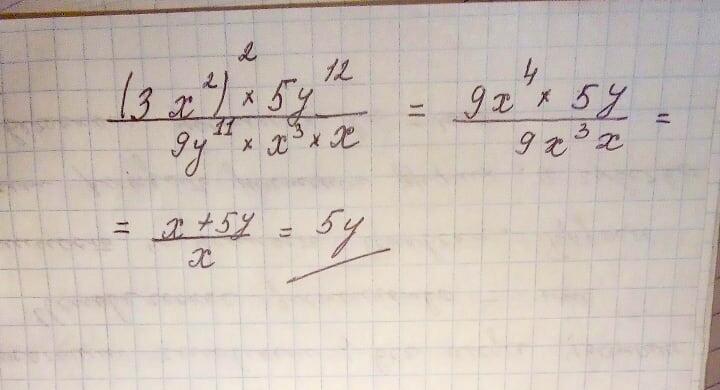 (3 x²)² × 5y¹² / 9y¹¹ × x³ × x = 9x⁴ × 5y / 9x³x =
= x + 5y / x = 5y